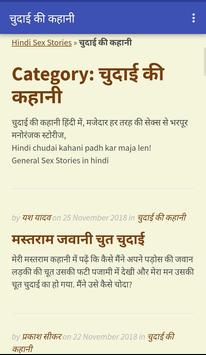 चुदाई की कहानी
Hindi Sex Stories » चुदाई की कहानी
Category: चुदाई की
कहानी
चुदाई की कहानी हिंदी में, मजेदार हर तरह की सेक्स से भरपूर
मनोरंजक स्टोरीज,
Hindi chudai kahani padh kar maja len!
General Sex Stories in hindi
by यश यादव on 25 November 2018 in चुदाई की कहानी
मस्तराम जवानी चुत चुदाई
मेरी मस्तराम कहानी में पढ़ें कि कैसे मैंने अपने पड़ोस की जवान
लड़की की चूत उसकी फटी पजामी में देखी और मेरा मन उसकी
चूत चुदाई का हो गया. मैंने उसे कैसे चोदा?
by प्रकाश सीकर on 22 November 2018 in चुदाई की
कहानी